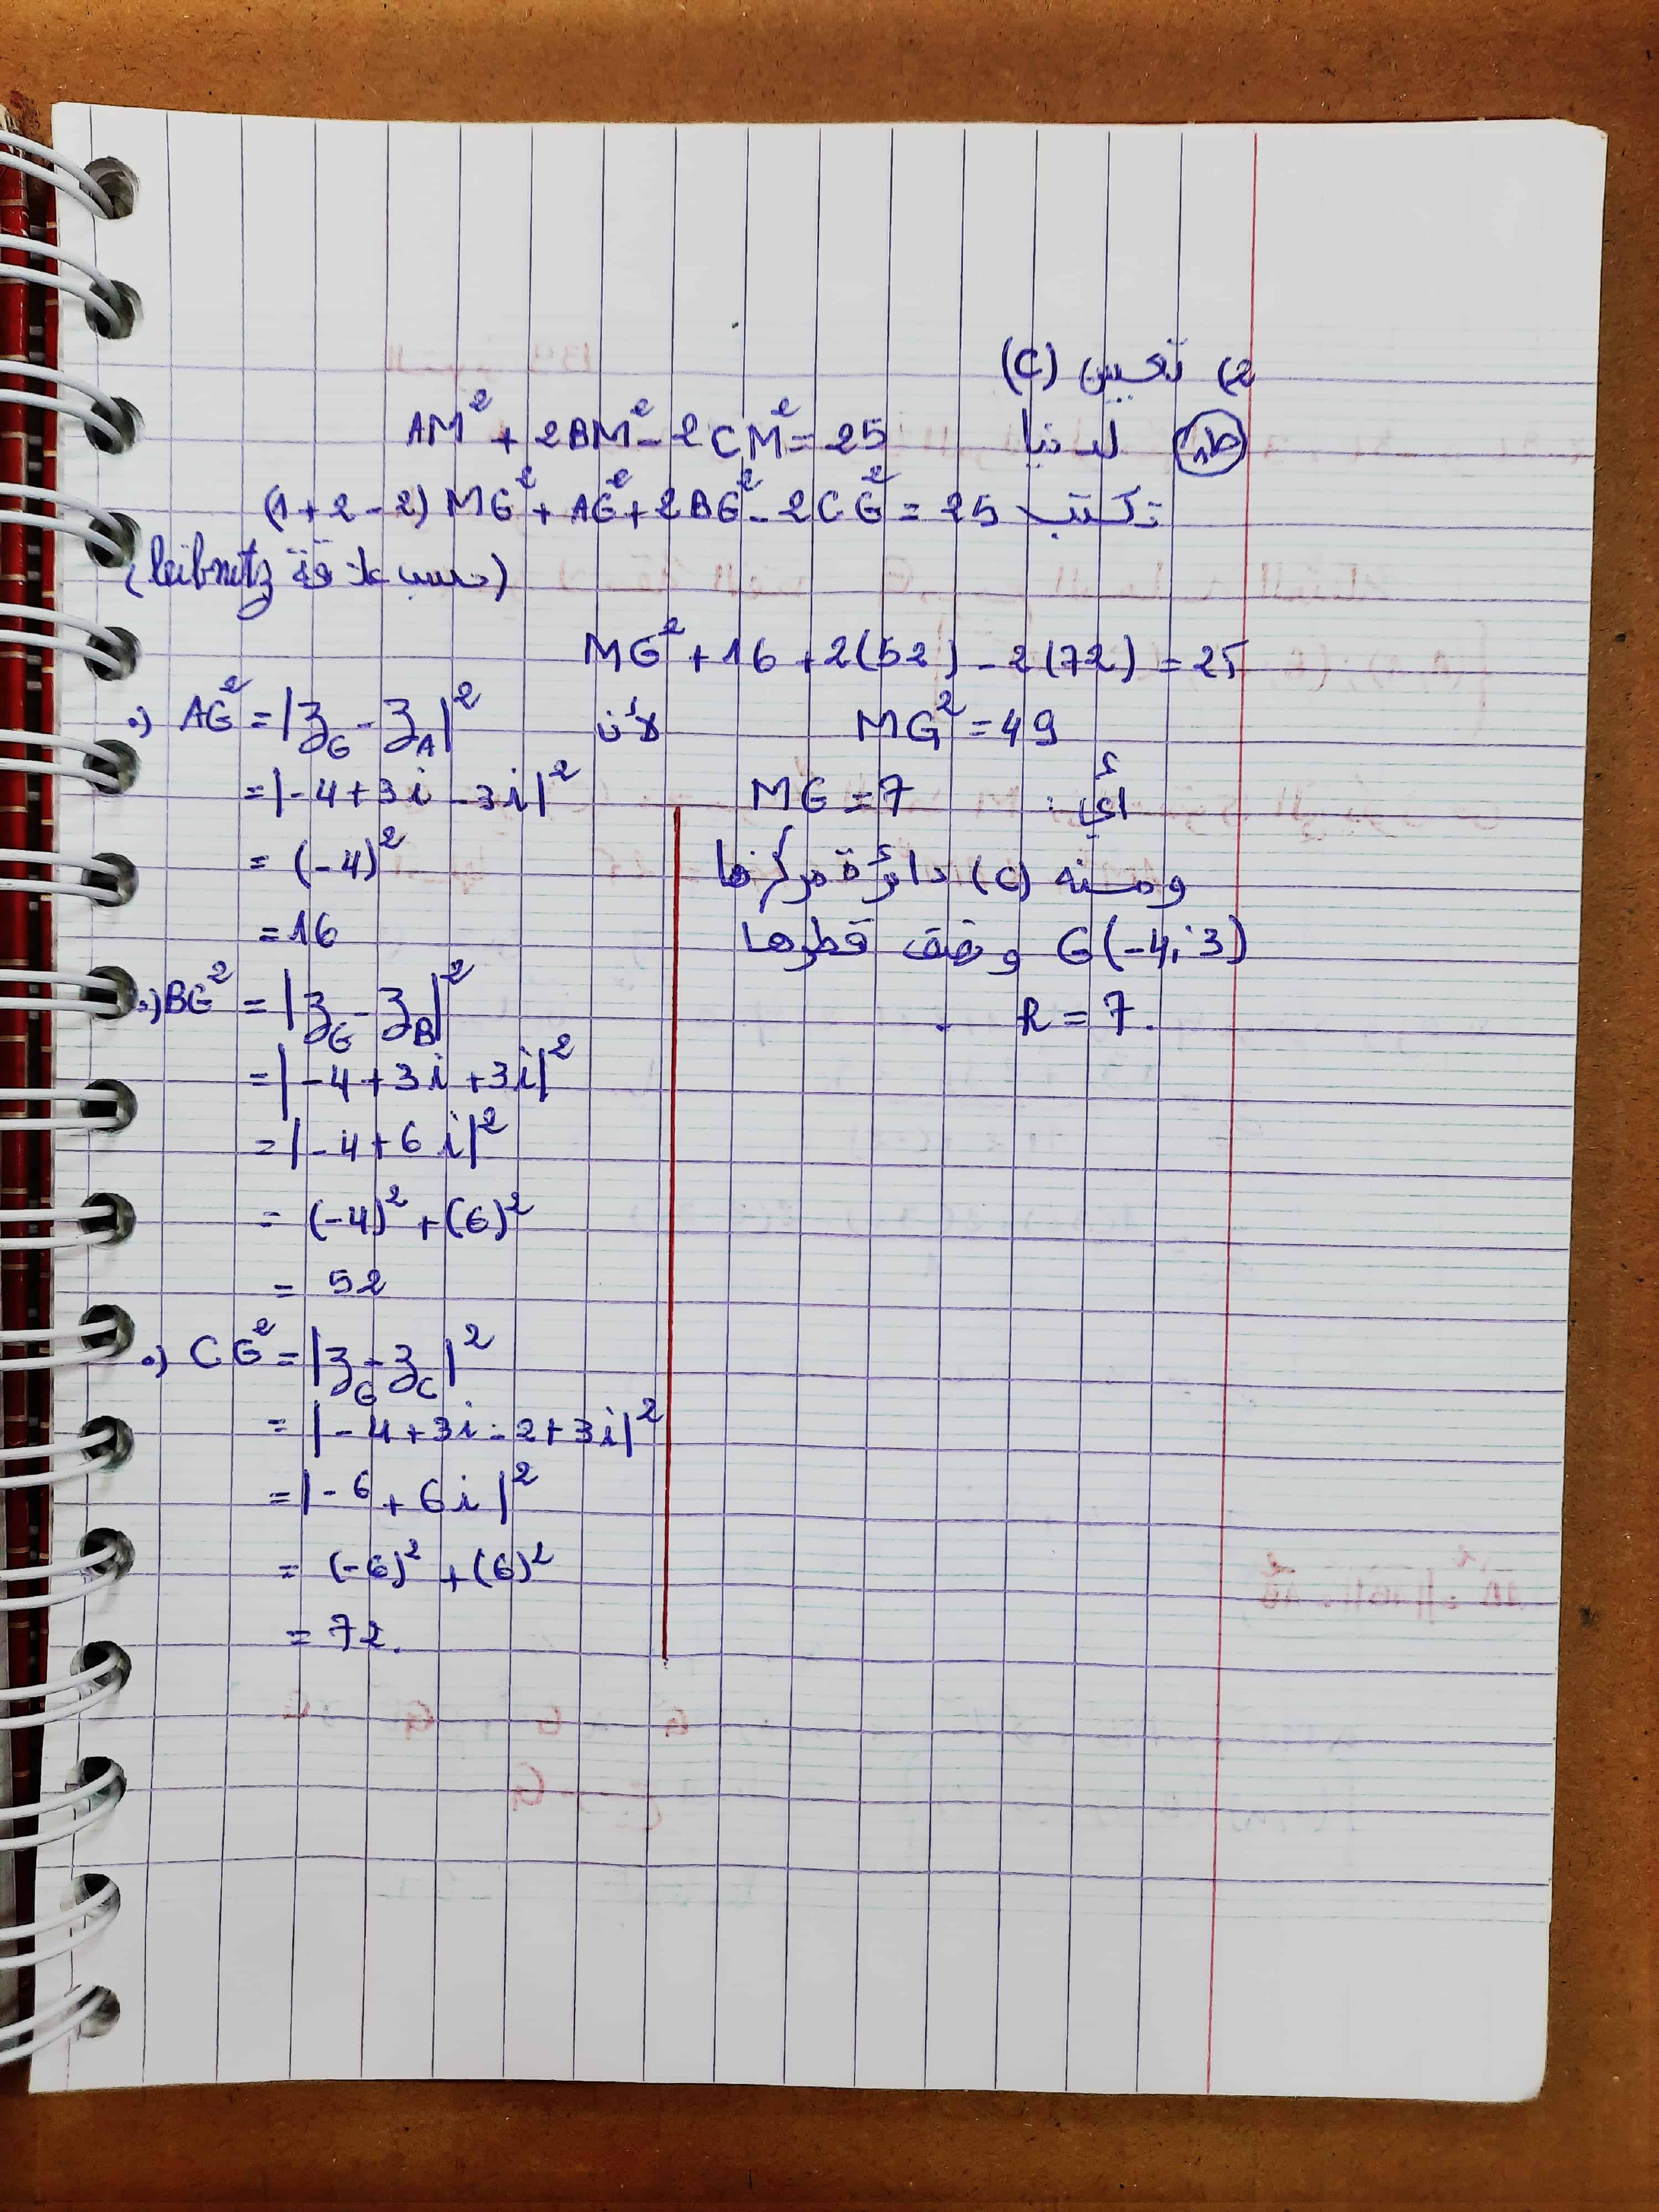 2) تعيين (C)
ط1 لدينا AM² + 2BM² - 2CM² = 25
تكتب (1+2-2) MG² + AG² + 2BG² - 2CG² = 25
(حسب علاقة leibnitz)
MG² + 16 + 2(52) - 2(72) = 25
MG² = 49 لأن
أي : MG = 7
ومنه (C) دائرة مركزها
G(-4; 3) ونصف قطرها
R = 7.
•) AG² = |z_G - z_A|²
= |-4+3i-3i|²
= (-4)²
= 16
•) BG² = |z_G - z_B|²
= |-4+3i+3i|²
= |-4+6i|²
= (-4)² + (6)²
= 52
•) CG² = |z_G - z_C|²
= |-4+3i-2+3i|²
= |-6+6i|²
= (-6)² + (6)²
= 72.